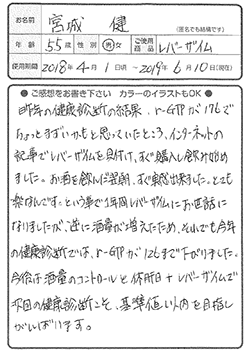 お名前 宮城 健 (匿名でも結構です)
年齢 55才 性別 男・女 ご使用商品 レバーザイム
使用期間 2018年4月1日頃〜2019年6月10日(現在)
●ご感想をお書き下さい カラーのイラストもOK●
昨年の健康診断の結果、r-GTPが176で
ちょっとまずいかもと思っていたところ、インターネットの
記事でレバーザイムを見付け、すぐ購入し飲み始め
ました。お酒を飲んだ翌朝、すぐ実感出来ました。とても
楽なんです。という事で1年間レバーザイムにお世話に
なりましたが、逆に酒量が増えたため、それでも今年
の健康診断では、r-GTPが126まで下がりました。
今後は酒量のコントロールと休肝日+レバーザイムで
次回の健康診断こそ、基準値以内を目指し
がんばります。